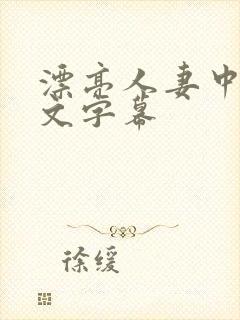 漂亮人妻中
文字幕
徐缓